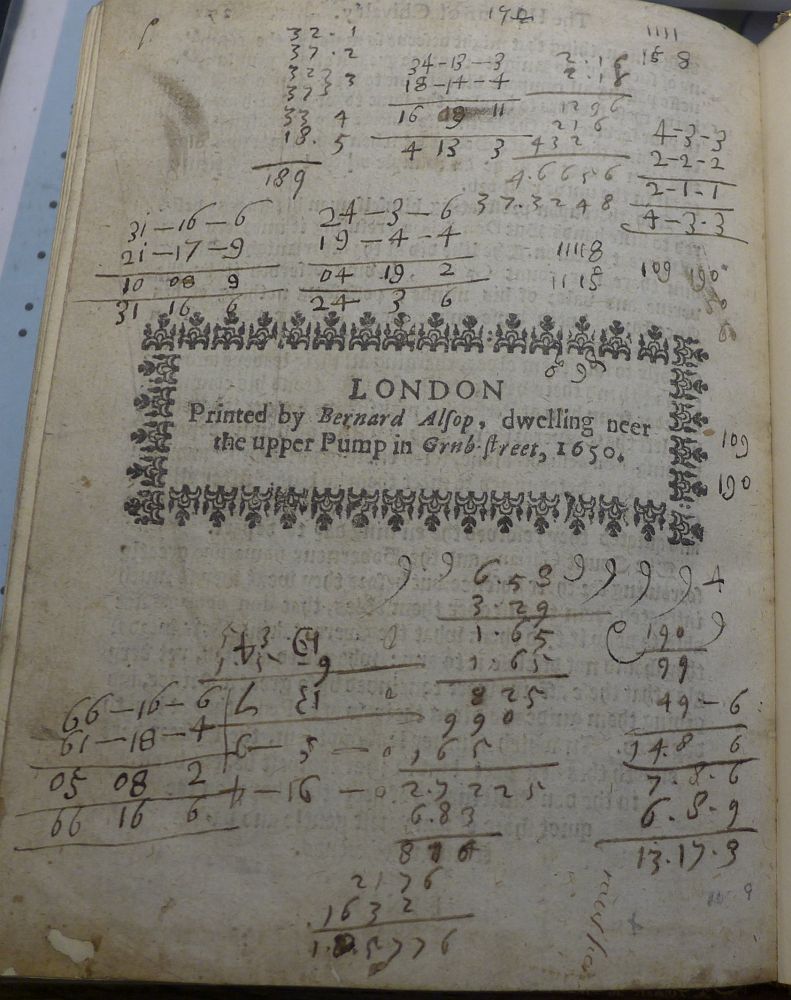 32 . 1
37 . 2
323 3
373
33 4
18. 5
189
34-13-3
18-14-4
16 19 11
4 13 3
2.16
2.16
1296
216
432
4.6656
37.3248
1111
15 8
4-3-3
2-2-2
2-1-1
4-3-3
31-16-6
21-17-9
10 08 9
31 16 6
24-3-6
19-4-4
04 19 2
24 3 6
11118
1115
109 190
LONDON
Printed by Bernard Alſop, dwelling neer
the upper Pump in Grub-ſtreet, 1650.
109
190
6.58
3.29
1.65
165
825
990
165
2.7225
6.83
2176
1632
190
99
49-6
14.8 6
7.8.6
6.8.9
13.17.3
66-16-6
61-18-4
05 08 2
66 16 6
4-16-0